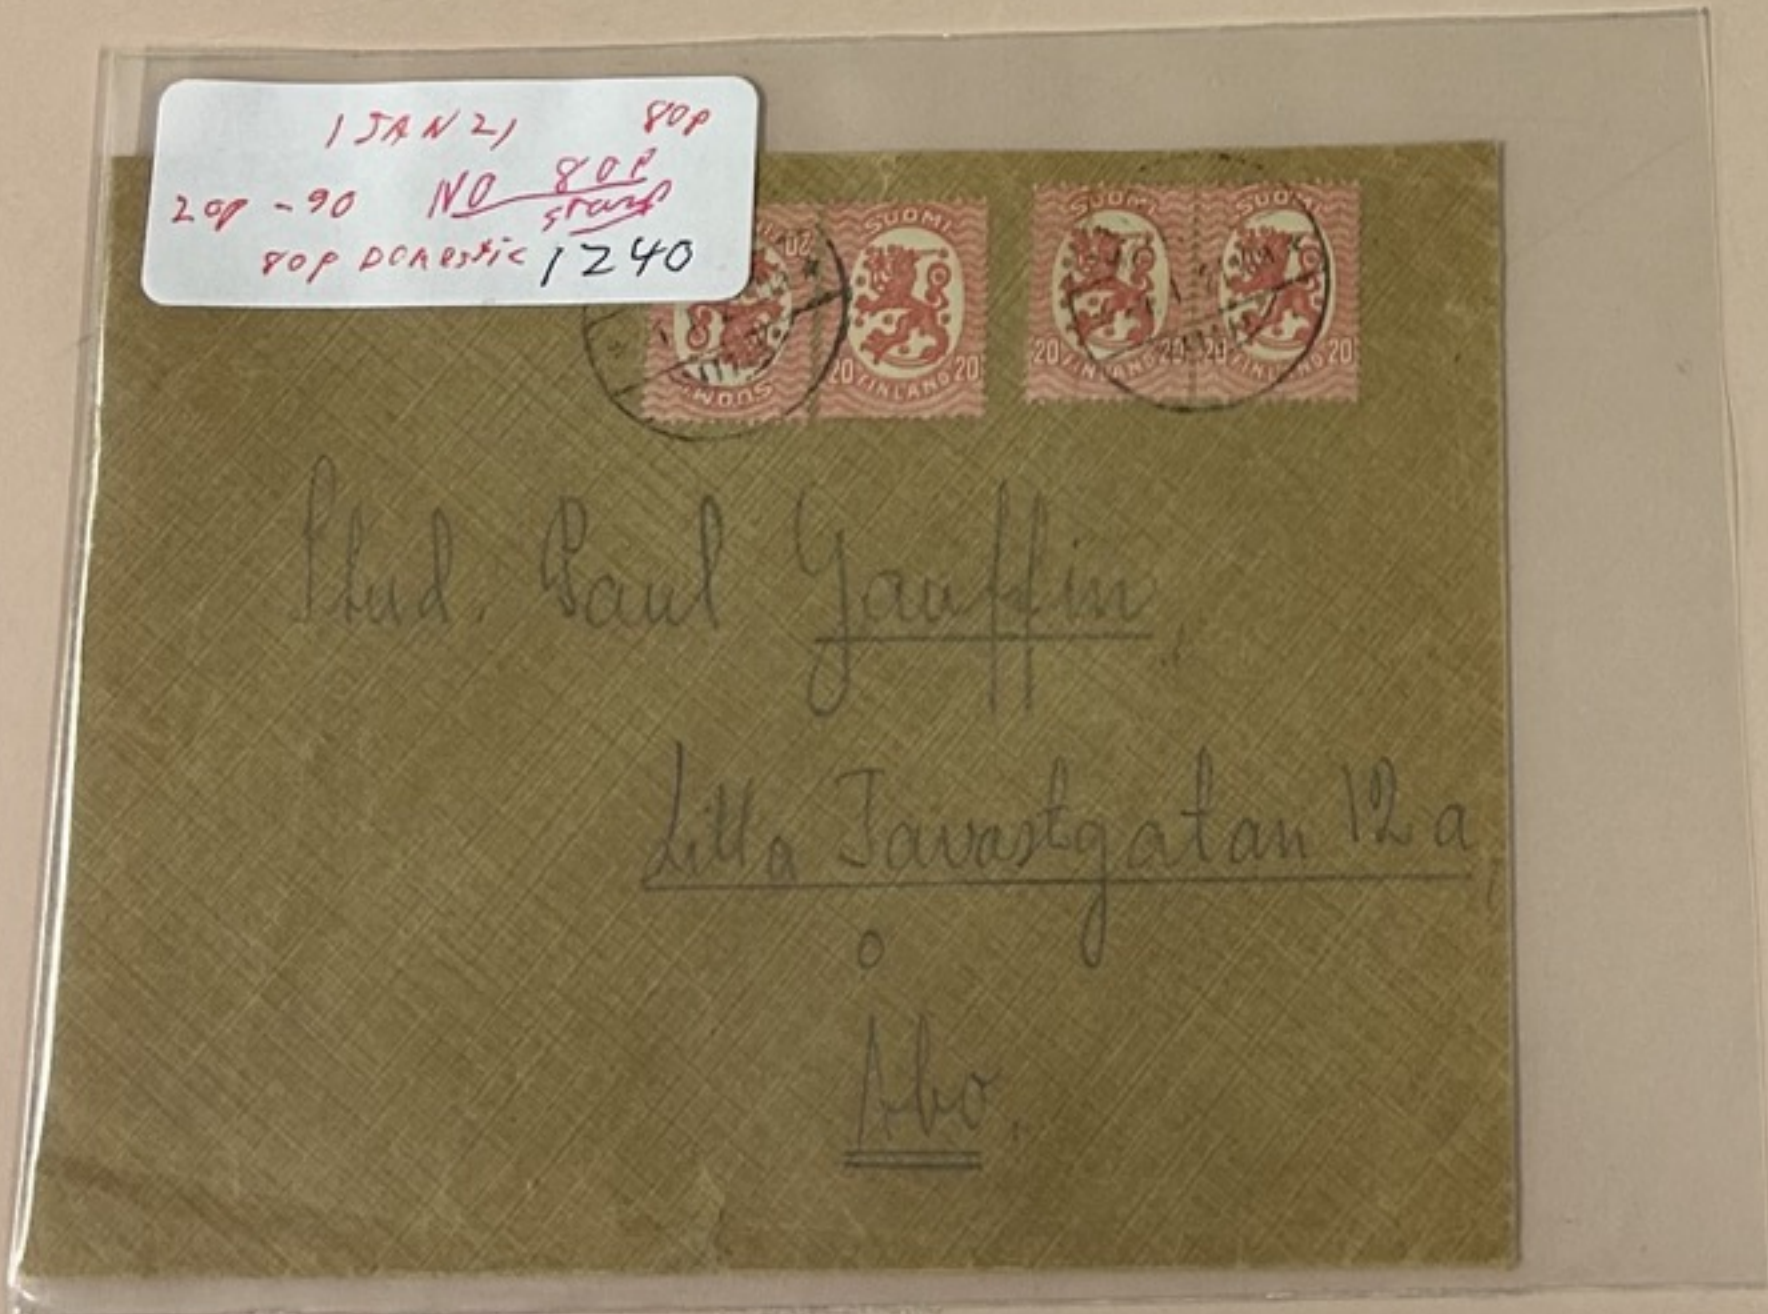 1 JAN 21 80p
20p - 90 NO 80P stamp
80p Domestic 1240
SUOMI
20
SUOMI
20 FINLAND 20
SUOMI
20 FINLAND 20
SUOMI
20 FINLAND 20
Stud. Paul Gauffin,
Lilla Tavastgatan 12 a,
Åbo.